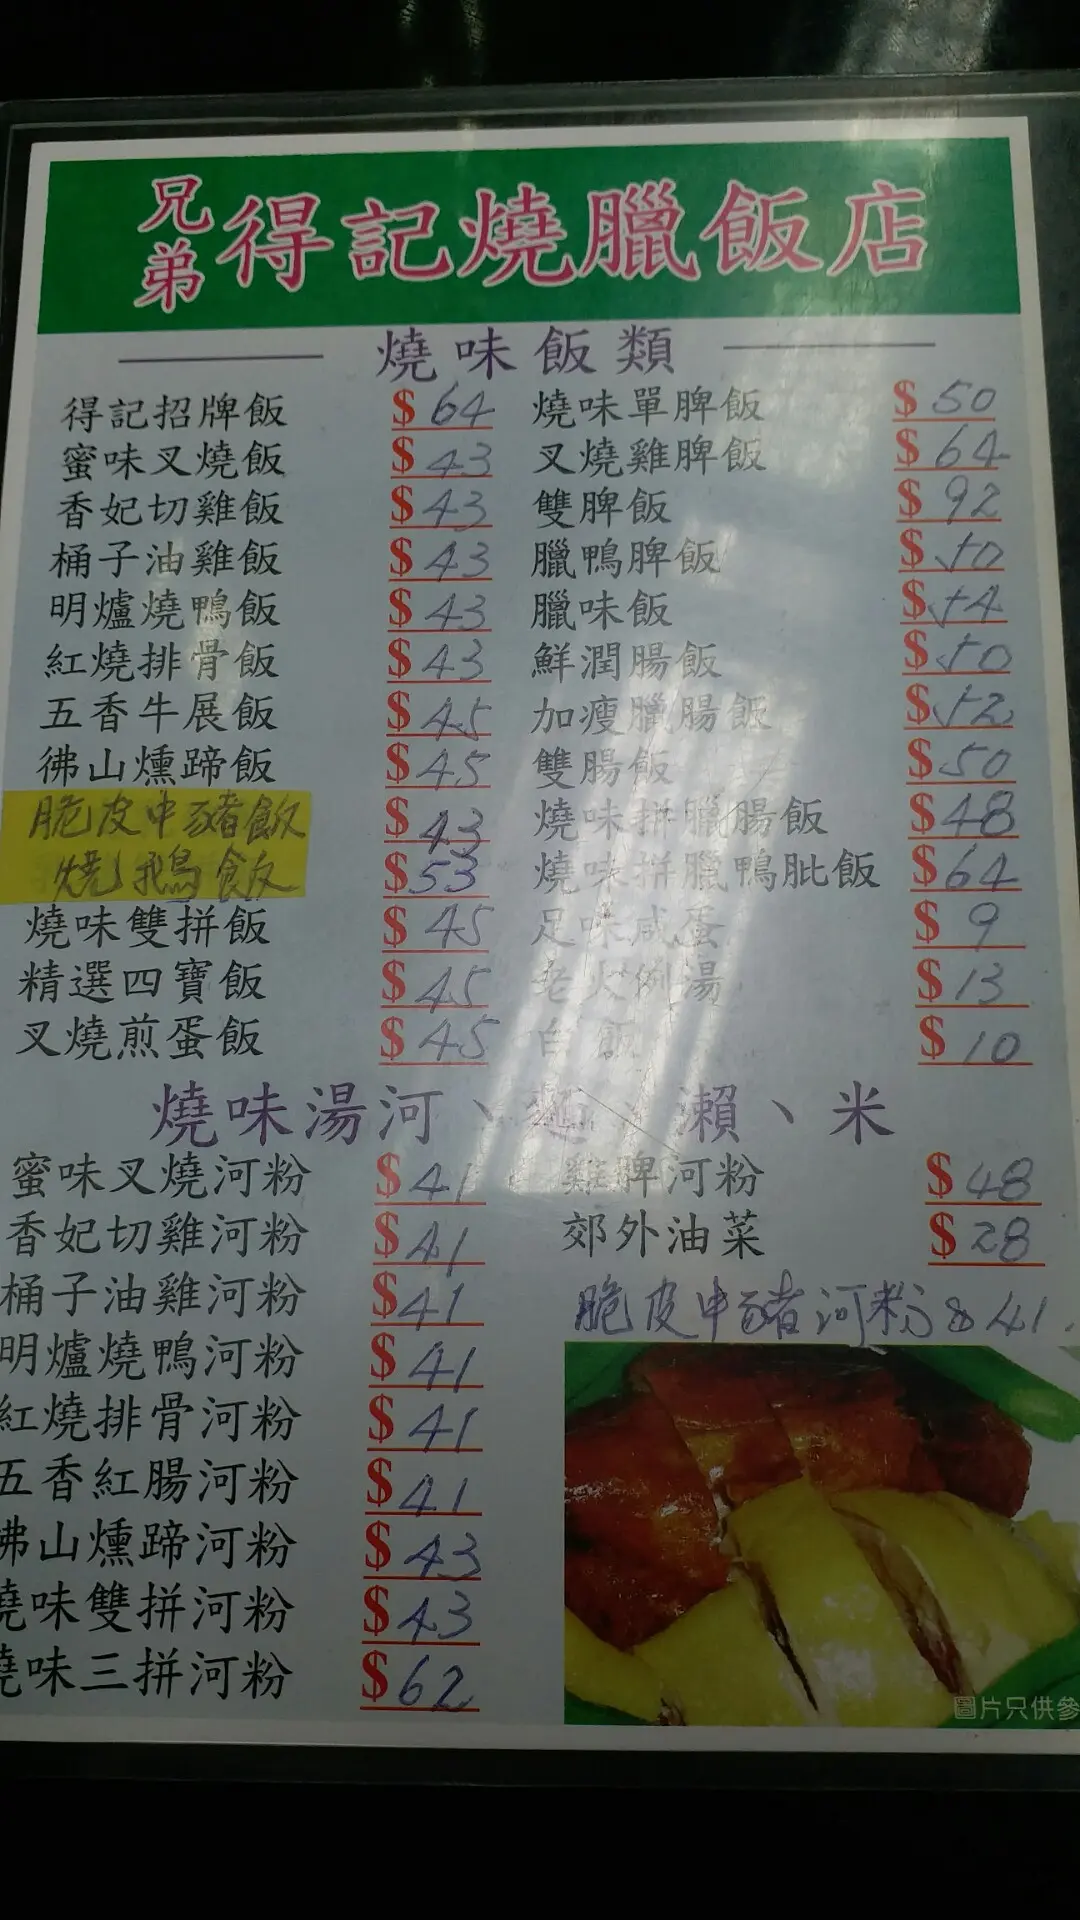 兄弟得記燒臘飯店
燒味飯類
得記招牌飯 $64
蜜味叉燒飯 $43
香妃切雞飯 $43
桶子油雞飯 $43
明爐燒鴨飯 $43
紅燒排骨飯 $43
五香牛展飯 $45
彿山燻蹄飯 $45
脆皮中豬飯 $43
燒鵝飯 $53
燒味雙拼飯 $45
精選四寶飯 $45
叉燒煎蛋飯 $45
燒味單脾飯 $50
叉燒雞脾飯 $64
雙脾飯 $92
臘鴨脾飯 $50
臘味飯 $54
鮮潤腸飯 $50
加瘦臘腸飯 $52
雙腸飯 $50
燒味拼臘腸飯 $48
燒味拼臘鴨肶飯 $64
足味咸蛋 $9
老火例湯 $13
白飯 $10
燒味湯河、麵、瀨、米
蜜味叉燒河粉 $41
香妃切雞河粉 $41
桶子油雞河粉 $41
明爐燒鴨河粉 $41
紅燒排骨河粉 $41
五香紅腸河粉 $41
彿山燻蹄河粉 $43
燒味雙拼河粉 $43
燒味三拼河粉 $62
雞脾河粉 $48
郊外油菜 $28
脆皮中豬河粉 $41.
圖片只供參